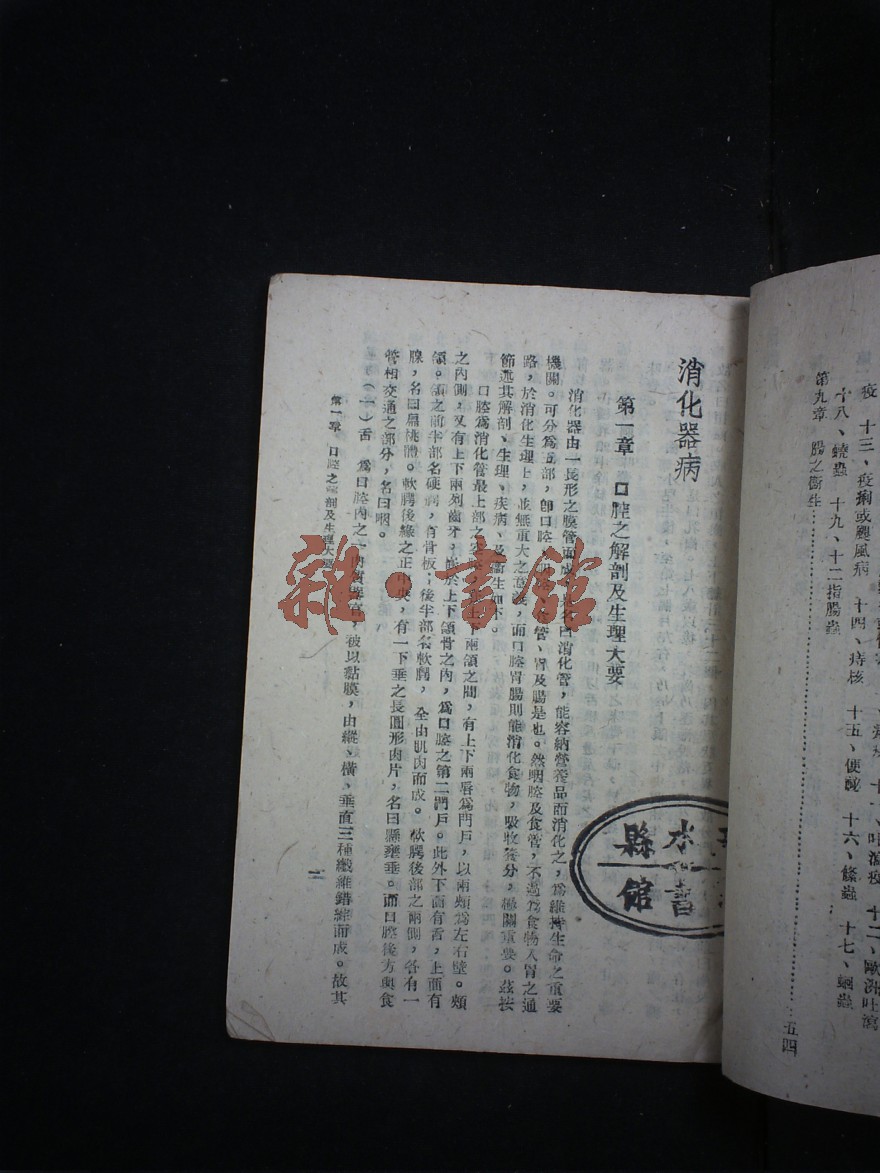 疫　十三、疫痢或颶風病　十四、痔核　十五、便祕　十六、條蟲　十七、蛔蟲
十八、蟯蟲　十九、十二指腸蟲
第九章　腸之衞生……………………五四
消化器病
第一章　口腔之解剖及生理大要
消化器由一長形之膜管而成，名曰消化管，能容納營養品而消化之，為維持生命之重要
機關。可分為五部，卽口腔、管、胃及腸是也。然咽腔及食管，不過為食物入胃之通
路，於消化生理上，並無重大之意義，而口腔胃腸則能消化食物，吸收養分，極關重要。茲按
節述其解剖、生理、疾病、及衞生如下。
口腔為消化管最上部之上下兩頜之間，有上下兩唇為門戶，以兩頰為左右壁。頰
之內側，又有上下兩列齒牙，於上下頜骨之內，為口腔之第二門戶。此外下面有舌，上面有
頜。頜之前半部名硬腭，有骨板；後半部名軟腭，全由肌肉而成。軟腭後部之兩側，各有一
腺，名曰扁桃體。軟腭後緣之正中央，有一下垂之長圓形肉片，名曰懸壅垂。而口腔後方與食
管相交通之部分，名曰咽。
（一）舌　為口腔內之一肉質器官，被以黏膜，由縱、橫、垂直三種纖維錯綜而成。故其
第一章　口腔之解剖及生理大要
一
水
書
縣
館
雜·書館